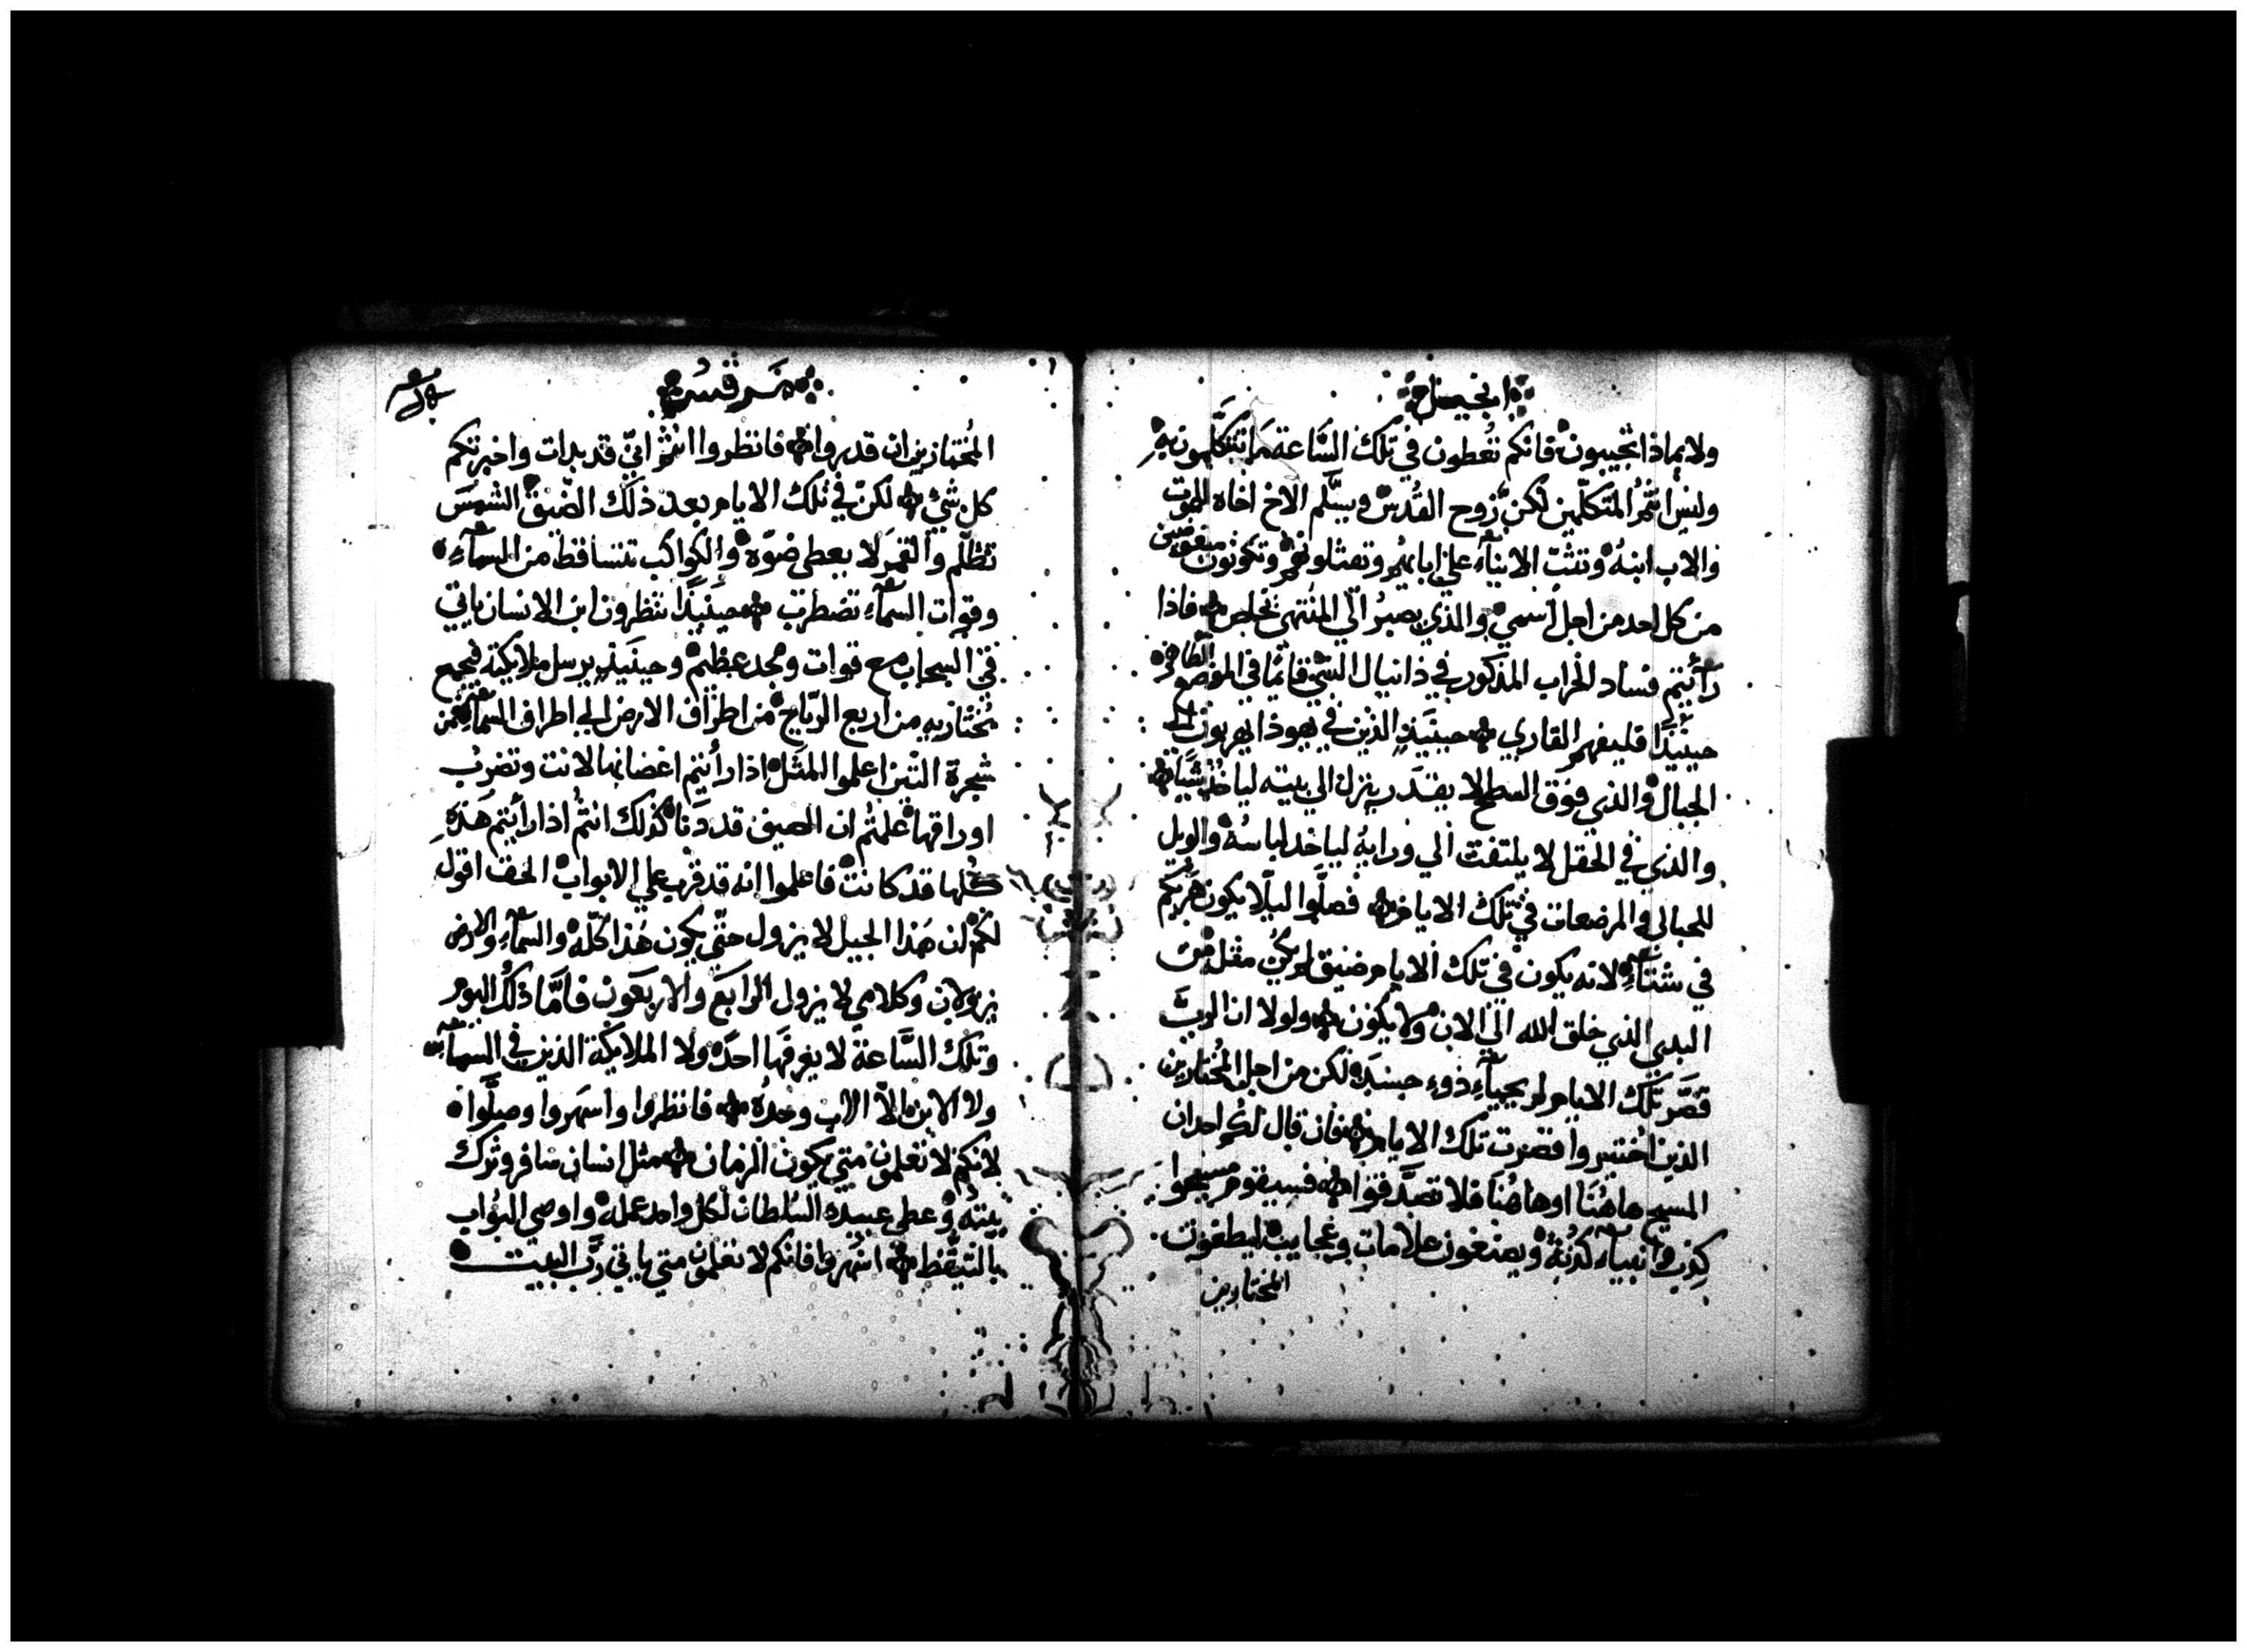 انجيل
ولا بماذا تجيبون فانكم تعطون في تلك الساعة ما تتكلمون به
وليس انتم المتكلمين لكن روح القدس ويسلم الاخ اخاه للموت
والاب ابنه وتثب الابنآء علي ابايهم ويقتلونهم وتكونون مبغوضين
من كل احد من اجل اسمي والذي يصبر الي المنتهي يخلص فاذا
رأيتم فساد الخراب المذكور في دانيال النبي قايما في الموضع الطاهر
حينيذا فليفهم القاري حينيذ الذين في يهوذا يهربون الي
الجبال والذي فوق السطح لا يقدر ينزل الي بيته لياخذ شيا
والذي في الحقل لا يلتفت الي ورايه لياخد لباسه والويل
للحبالي والمرضعات في تلك الايام فصلوا ليلا يكون هربكم
في شتآء لانه يكون في تلك الايام ضيق لم يكن مثله من
البدي الذي خلق الله الي الان ولا يكون ولولا ان الرب
قصر تلك الايام لم يحيآء ذوء جسد لكن من اجل المختارين
الذين اختيروا قصرت تلك الايام فان قال لكم احد ان
المسيح هاهنا او هاهنا فلا تصدقوا فسيقوم مسيحوا
كذب وانبيآء كذبة ويصنعون علامات وعجايب ليطغون
المختارين
مرقس
المختارين ان قدروا فانظروا انتم اني قد بدات واخبرتكم
كل شي لكن في تلك الايام بعد ذلك الضيق الشمس
تظلم والقمر لا يعطي ضوه والكواكب تتساقط من السمآء
وقوات السمآء تضطرب حينيذا تنظرون ابن الانسان ياتي
في السحاب مع قوات ومجد عظيم وحينيذ يرسل ملايكته ليجمع
مختاريه من اربع الرياح من اطراف الارض الي اطراف السمآء من
شجرة التين اعلموا المثل اذا رأيتم اغصانها لانت وتضرب
اوراقها علمتم ان الصيف قد دنا كذلك انتم اذا رأيتم هذه
كلها قد كانت فاعلموا انه قد قرب علي الابواب الحق اقول
لكم ان هذا الجيل لا يزول حتي يكون هذا كله والسمآء والارض
يزولان وكلامي لا يزول الرابع والاربعون فاما ذلك اليوم
وتلك الساعة لا يعرفها احد ولا الملايكة الذين في السمآء
ولا الابن الا الاب وحده فانظروا واسهروا وصلوا
لانكم لا تعلمون متي يكون الزمان مثل انسان سافر وترك
بيته وعطي عبيده السلطان لكل واحد عمله واوصي البواب
بالتيقظ اسهروا فانكم لا تعلمون متي ياتي رب البيت